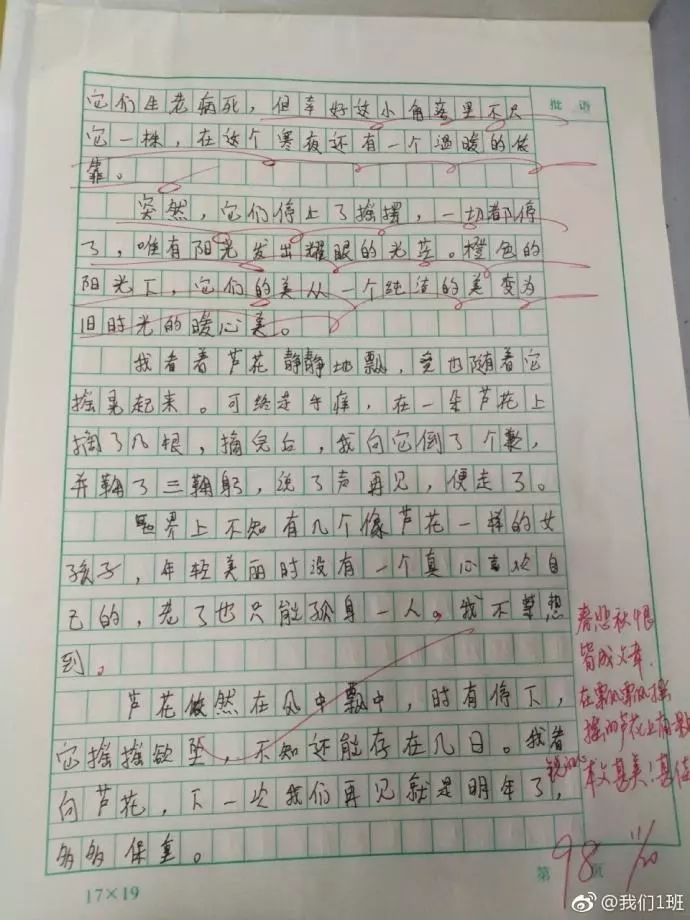 批语
它们生老病死，但幸好这小角落里不只
它一株，在这个寒夜还有一个温暖的依
靠。
突然，它们停上了摇摆，一切都停
了，唯有阳光发出耀眼的光芒。橙色的
阳光下，它们的美从一个纯洁的美变为
旧时光的暖心美。
我看着芦花静静地飘，竟也随着它
摇晃起来。可终走手痒，在一朵芦花上
摘了几根，摘完后，我向它倒了个歉，
并鞠了三鞠躬，说了声再见，便走了。
世界上不知有几个像芦花一样的女
孩子，年轻美丽时没有一个真心喜欢自
己的，老了也只能孤身一人。我不敢想
到。
芦花依然在风中飘中，时有停下，
它摇摇欲坠，不知还能存在几日。我看
向芦花，下一次我们再见就是明年了，
多多保重。
春悲秋恨
皆成文章．
在飘飘摇
摇的芦花上
本文甚美！甚佳
98 11/20
第 页
17×19
@我们1班